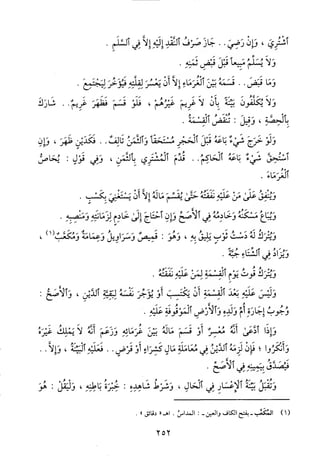 اشْتُرِيَ ، وَإِنْ رَضِيَ . . جَازَ صَرْفُ النَّقْدِ إِلَيْهِ إِلاَّ فِي السَّلَمِ .
وَلاَ يُسَلِّمُ مَبِيعاً قَبْلَ قَبْضِ ثَمَنِهِ .
وَمَا قَبَضَ . . قَسَمَهُ بَيْنَ الْغُرَمَاءِ إِلاَّ أَنْ يَعْسُرَ لِقِلَّتِهِ فَيُؤَخِّرَ لِيَجْتَمِعَ .
وَلاَ يُكَلَّفُونَ بَيِّنَةً بِأَنْ لاَ غَرِيمَ غَيْرُهُمْ ، فَلَوْ قَسَمَ فَظَهَرَ غَرِيمٌ . . شَارَكَ
بِالْحِصَّةِ ، وَقِيلَ : تُنْقَضُ الْقِسْمَةُ .
وَلَوْ خَرَجَ شَيْءٌ بَاعَهُ قَبْلَ الْحَجْرِ مُسْتَحَقّاً وَالثَّمَنُ تَالِفٌ . . فَكَدَيْنٍ ظَهَرَ ، وَإِنِ
اسْتُحِقَّ شَيْءٌ بَاعَهُ الْحَاكِمُ . . قُدِّمَ الْمُشْتَرِي بِالثَّمَنِ ، وَفِي قَوْلٍ : يُحَاصُّ
الْغُرَمَاءَ .
وَيُنْفِقُ عَلَى مَنْ عَلَيْهِ نَفَقَتُهُ حَتَّى يَقْسِمَ مَالَهُ إِلاَّ أَنْ يَسْتَغْنِيَ بِكَسْبٍ .
وَيُبَاعُ مَسْكَنُهُ وَخَادِمُهُ فِي الأَصَحِّ وَإِنِ احْتَاجَ إِلَى خَادِمٍ لِزَمَانَتِهِ وَمَنْصِبِهِ .
وَيُتْرَكُ لَهُ دَسْتُ ثَوْبٍ يَلِيقُ بِهِ ، وَهُوَ : قَمِيصٌ وَسَرَاوِيلُ وَعِمَامَةٌ وَمُكَعَّبٌ(١) ،
وَيُزَادُ فِي الشِّتَاءِ جُبَّةً .
وَيُتْرَكُ قُوتُ يَوْمِ الْقِسْمَةِ لِمَنْ عَلَيْهِ نَفَقَتُهُ .
وَلَيْسَ عَلَيْهِ بَعْدَ الْقِسْمَةِ أَنْ يَكْتَسِبَ أَوْ يُؤْجِرَ نَفْسَهُ لِبَقِيَّةِ الدَّيْنِ ، وَالأَصَحُّ :
وُجُوبُ إِجَارَةِ أُمِّ وَلَدِهِ وَالأَرْضِ الْمَوْقُوفَةِ عَلَيْهِ .
وَإِذَا ادَّعَى أَنَّهُ مُعْسِرٌ أَوْ قَسَمَ مَالَهُ بَيْنَ غُرَمَائِهِ وَزَعَمَ أَنَّهُ لاَ يَمْلِكُ غَيْرَهُ
وَأَنْكَرُوا ؛ فَإِنْ لَزِمَهُ الدَّيْنُ فِي مُعَامَلَةِ مَالٍ كَشِرَاءٍ أَوْ قَرْضٍ . . فَعَلَيْهِ الْبَيِّنَةُ ، وَإِلاَّ . .
فَيُصَدَّقُ بِيَمِينِهِ فِي الأَصَحِّ .
وَتُقْبَلُ بَيِّنَةُ الإِعْسَارِ فِي الْحَالِ ، وَشَرْطُ شَاهِدِهِ : خُبْرَةُ بَاطِنِهِ ، وَلْيَقُلْ : هُوَ
(١) المُكَعَّب ـ بفتح الكاف والعين ـ : المداس . اهـ « دقائق » .
٢٥٢